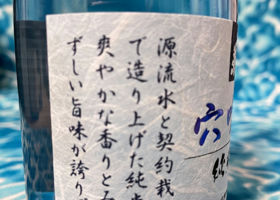 源流水と契約栽
で造り上げた純
爽やかな香りとみ
ずしい旨味が誇り
穴
純